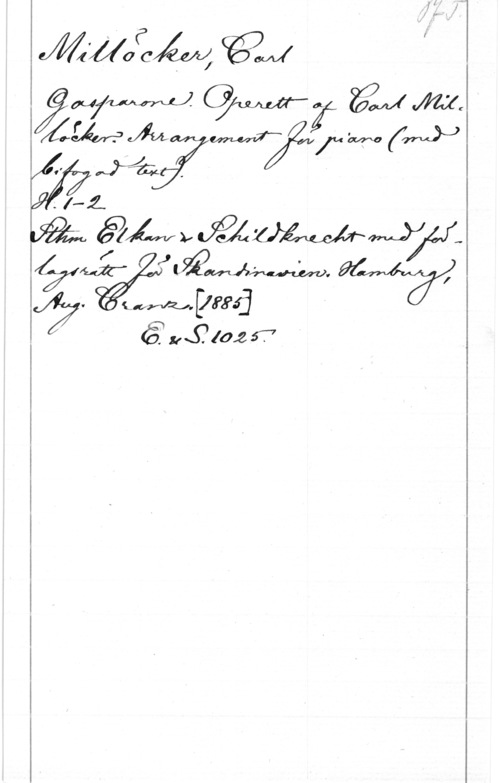 Millöcker, Carl
Gasparone. Operett af Carl Mil-
löcker. Arrangement för piano (med
bifogad text).
H. 1-2
Sthm Elkan & Schildknecht med för-
lagsrätt för Skandinavien. Hamburg,
Aug. Cranz. [1885]
E. & S. 1025